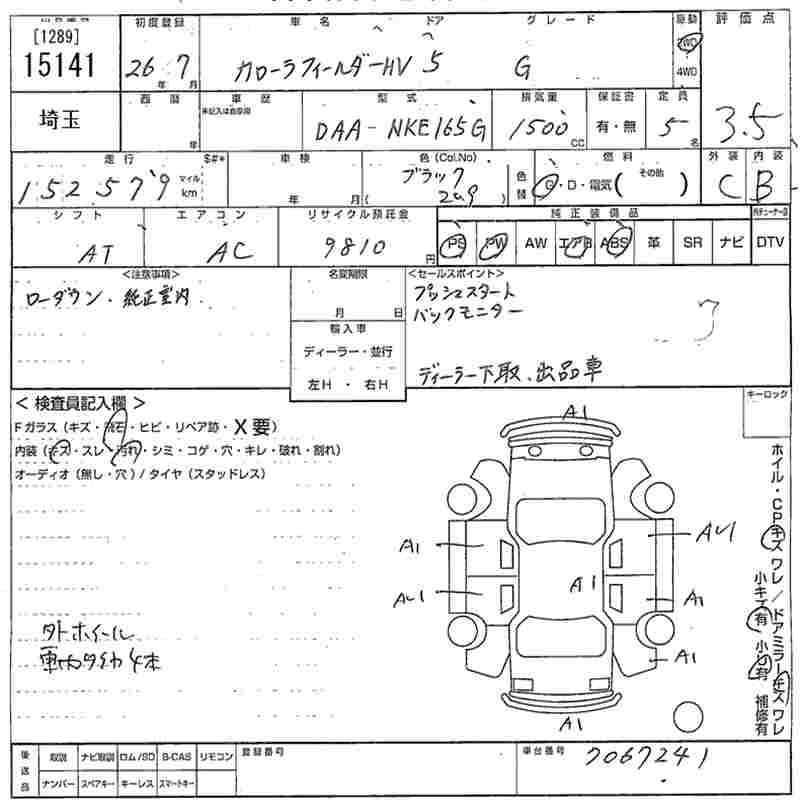 [1289]
15141
初度登録
26年 7月
車名 ドア グレード
カローラフィールダーHV 5 G
駆動
2WD
4WD
評価点
3.5
埼玉
西暦
年
車歴
未記入は自家用
型式
DAA-NKE165G
排気量
1500 CC
保証書
有・無
定員
5名
走行
152,579
マイル
km
$#*
車検
年 月(
色(Col.No)
ブラック
209 )
色替
燃料
G・D・電気( その他 )
外装
C
内装
B
シフト
AT
エアコン
AC
リサイクル預託金
9810円
純正装備品
PS PW AW エアB ABS 革 SR ナビ DTV
<注意事項>
ローダウン・純正室内
名変期限
月 日
輸入車
ディーラー・並行
左H・右H
<セールスポイント>
プッシュスタート
バックモニター
ディーラー下取、出品車
<検査員記入欄>
Fガラス(キズ・飛石・ヒビ・リペア跡・X要)
内装(キズ・スレ・汚れ・シミ・コゲ・穴・キレ・破れ・割れ)
オーディオ(無し・穴)/タイヤ(スタッドレス)
キーロック
A1
A1
AU1
AU1
A1
A1
A1
A1
ホイル・CPキズワレ/ドアミラーキズワレ
小キズ有 小凹有 補修有
外ホイール
後送品
取説 ナビ取説 ロム/SD B-CAS リモコン
ナンバー スペアキー キーレス スマートキー
登録番号
車台番号
7067241